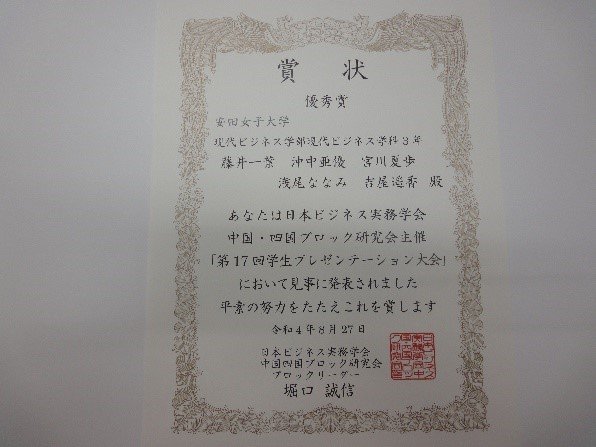 賞状
優秀賞
安田女子大学
現代ビジネス学部現代ビジネス学科3年
藤井一葉 沖中亜優 宮川夏歩
浅尾ななみ 吉屋遥香 殿
あなたは日本ビジネス実務学会
中国・四国ブロック研究会主催
「第17回学生プレゼンテーション大会」
において見事に発表されました
平素の努力をたたえこれを賞します
令和4年8月27日
日本ビジネス実務学会
中国四国ブロック研究会
ブロックリーダー
堀口 誠信